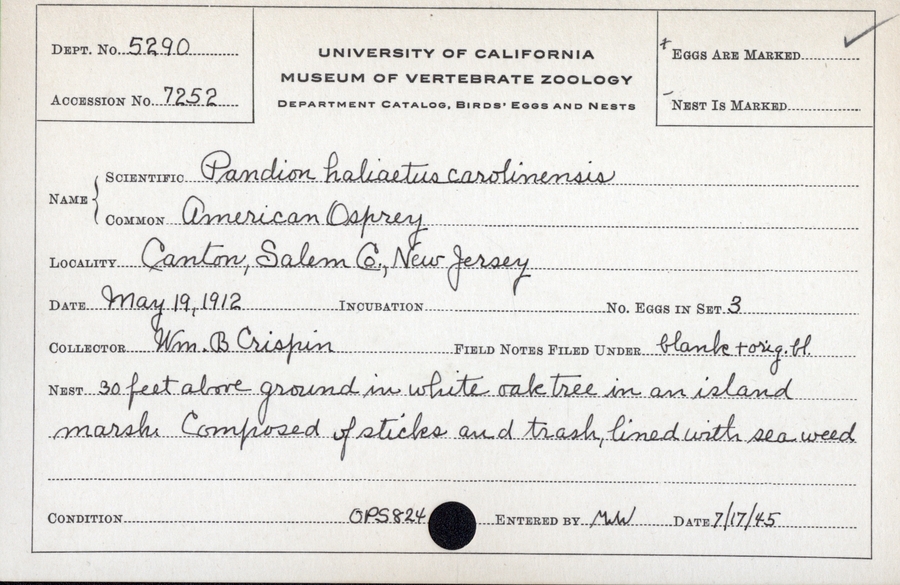 DEPT. NO. 5290
ACCESSION NO. 7252
UNIVERSITY OF CALIFORNIA
MUSEUM OF VERTEBRATE ZOOLOGY
DEPARTMENT CATALOG, BIRDS' EGGS AND NESTS
+ EGGS ARE MARKED ✓
- NEST IS MARKED
NAME { SCIENTIFIC Pandion haliaetus carolinensis
COMMON American Osprey
LOCALITY Canton, Salem Co., New Jersey
DATE May 19, 1912 INCUBATION NO. EGGS IN SET 3
COLLECTOR Wm. B Crispin FIELD NOTES FILED UNDER blank + orig. bl.
NEST 30 feet above ground in white oak tree in an island
marsh. Composed of sticks and trash, lined with sea weed
CONDITION OPS824 ENTERED BY DATE 7/17/45